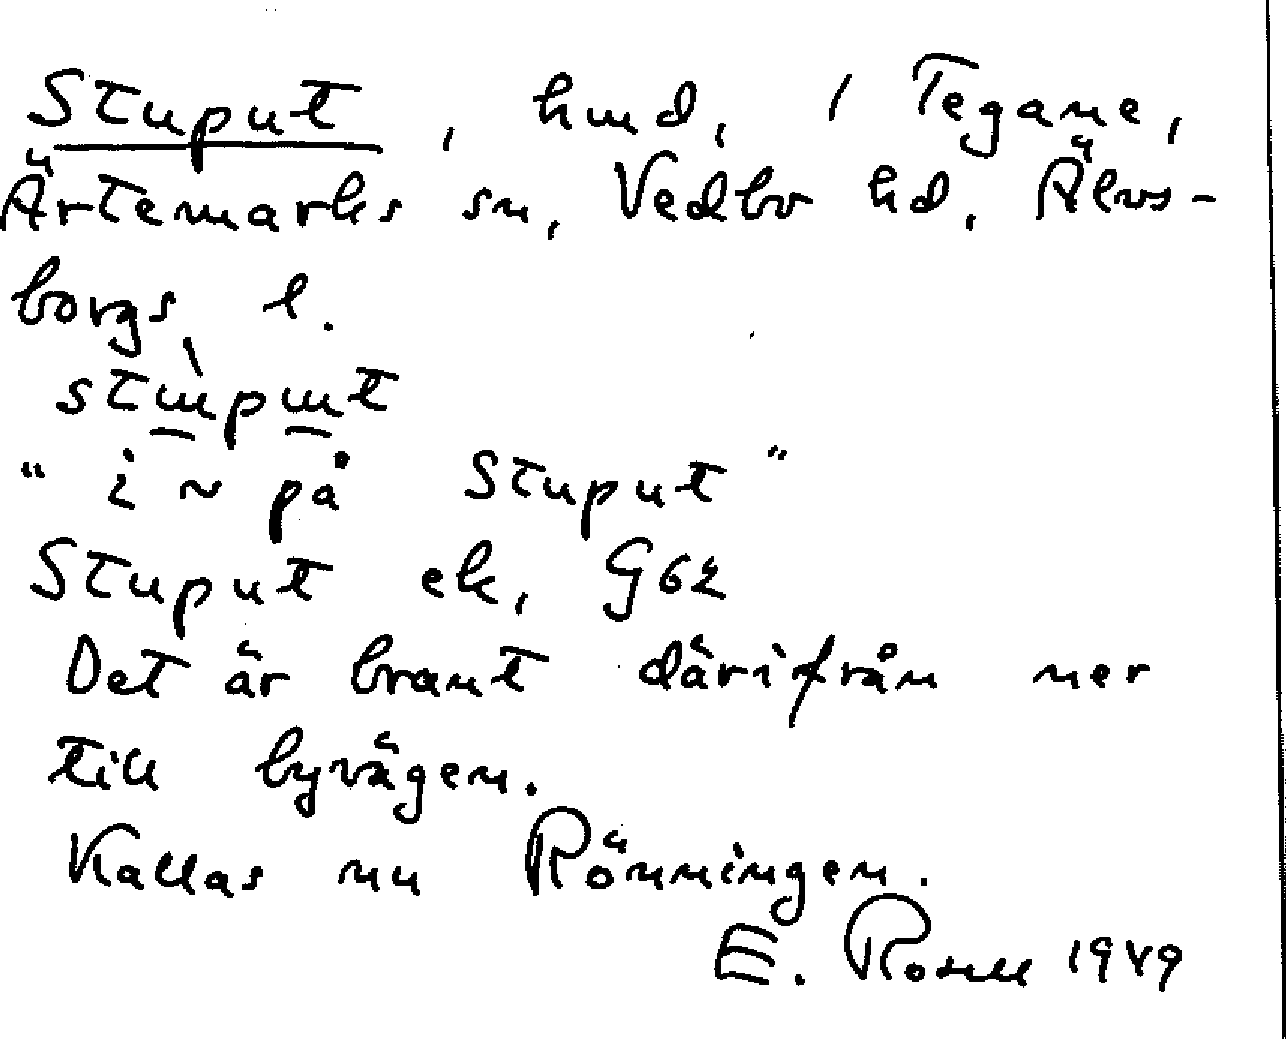 Stuput, hmd, / Tegane,
Ärtemarks sn, Vedbo hd, Älvs-
borgs l.
stùput
"i ~ på Stuput"
Stuput ek, G62
Det är brant därifrån ner
till byvägen.
Kallas nu Rönningen.
E. Rosell 1949